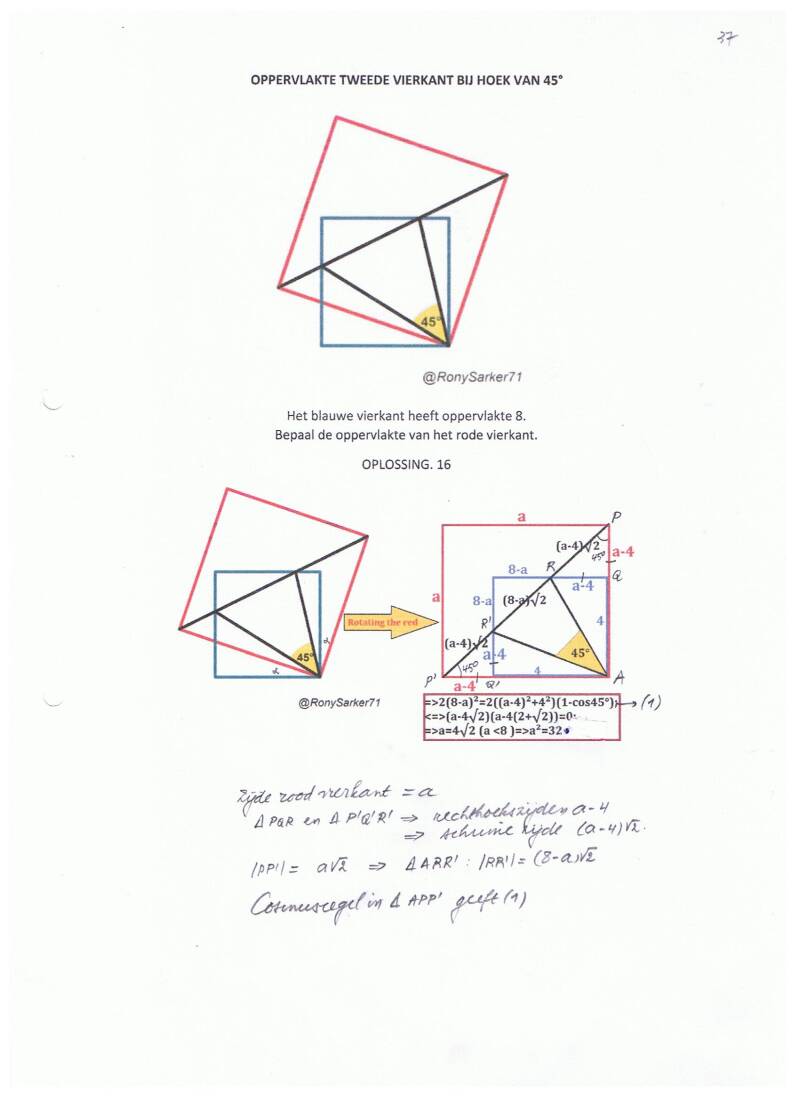 37
OPPERVLAKTE TWEEDE VIERKANT BIJ HOEK VAN 45°
45°
@RonySarker71
Het blauwe vierkant heeft oppervlakte 8.
Bepaal de oppervlakte van het rode vierkant.
OPLOSSING. 16
a
P
(a-4)√2
45°
a-4
8-a
R
Q
a-4
a
8-a
(8-a)√2
4
Rotating the red
R'
(a-4)√2
a-4
45°
α
45°
α
45°
4
P'
a-4
Q'
A
@RonySarker71
=>2(8-a)²=2((a-4)²+4²)(1-cos45°); → (1)
<=>(a-4√2)(a-4(2+√2))=0
=>a=4√2 (a <8 )=>a²=32
Zijde rood vierkant = a
Δ PQR en Δ P'Q'R' ⇒ rechthoekszijden a-4
⇒ schuine zijde (a-4)√2.
|PP'| = a√2 ⇒ Δ ARR' : |RR'| = (8-a)√2
Cosinusregel in Δ APP' geeft (1)